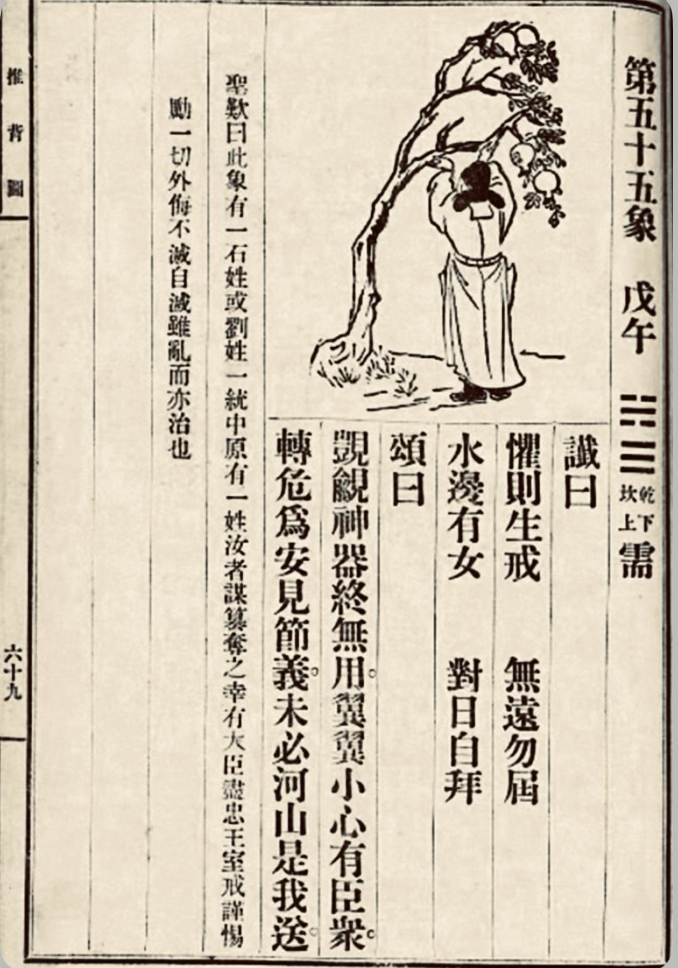 第五十五象 戊午 ䷄ 乾下 坎上 需
讖曰
懼則生戒 無遠勿屆
水邊有女 對日自拜
頌曰
覬覦神器終無用。翼翼小心有臣衆。
轉危爲安見節義。未必河山是我送。
聖歎曰此象有一石姓或劉姓一統中原有一姓汝者謀篡奪之幸有大臣盡忠王室戒謹惕
勵一切外侮不滅自滅雖亂而亦治也
推背圖
六十九